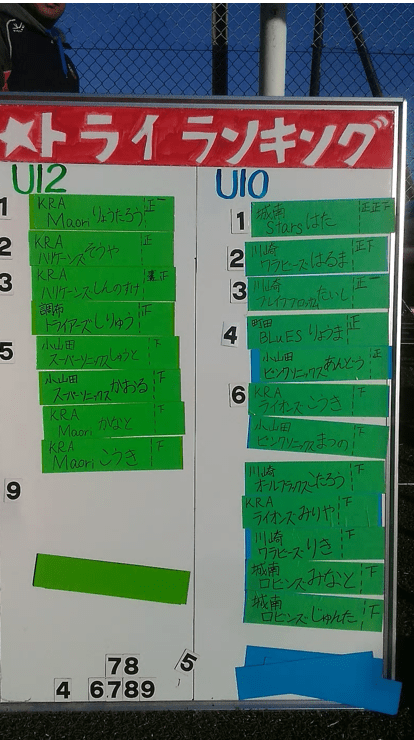 ★トライランキング
U12
1 KRA 正一
Maori りょうたろう
2 KRA 正
ハリケーンズ そうや
3 KRA 正
ハリケーンズ しんのすけ
調布 正
ドライアーズ しりゅう
5 小山田 下
スーパーソニックス しゅうと
小山田 下
スーパーソニックス かおる
KRA 下
Maori かなと
KRA 下
Maori こうき
9
78 5
4 6789
U10
1 城南 正正下
Stars はた
2 川崎 正下
ワラビーズ はるま
3 川崎 正一
たいし
4 町田 正
BLuES りょうま
小山田 正
ピンクソニックス あんとう
6 KRA 下
ライオンズ こうき
小山田 下
ピンクソニックス まつの
川崎 下
オールブラックス こたろう
KRA 下
ライオンズ みりや
川崎 下
ワラビーズ りき
城南 下
ロビンズ みなと
城南 下
ロビンズ じゅんた